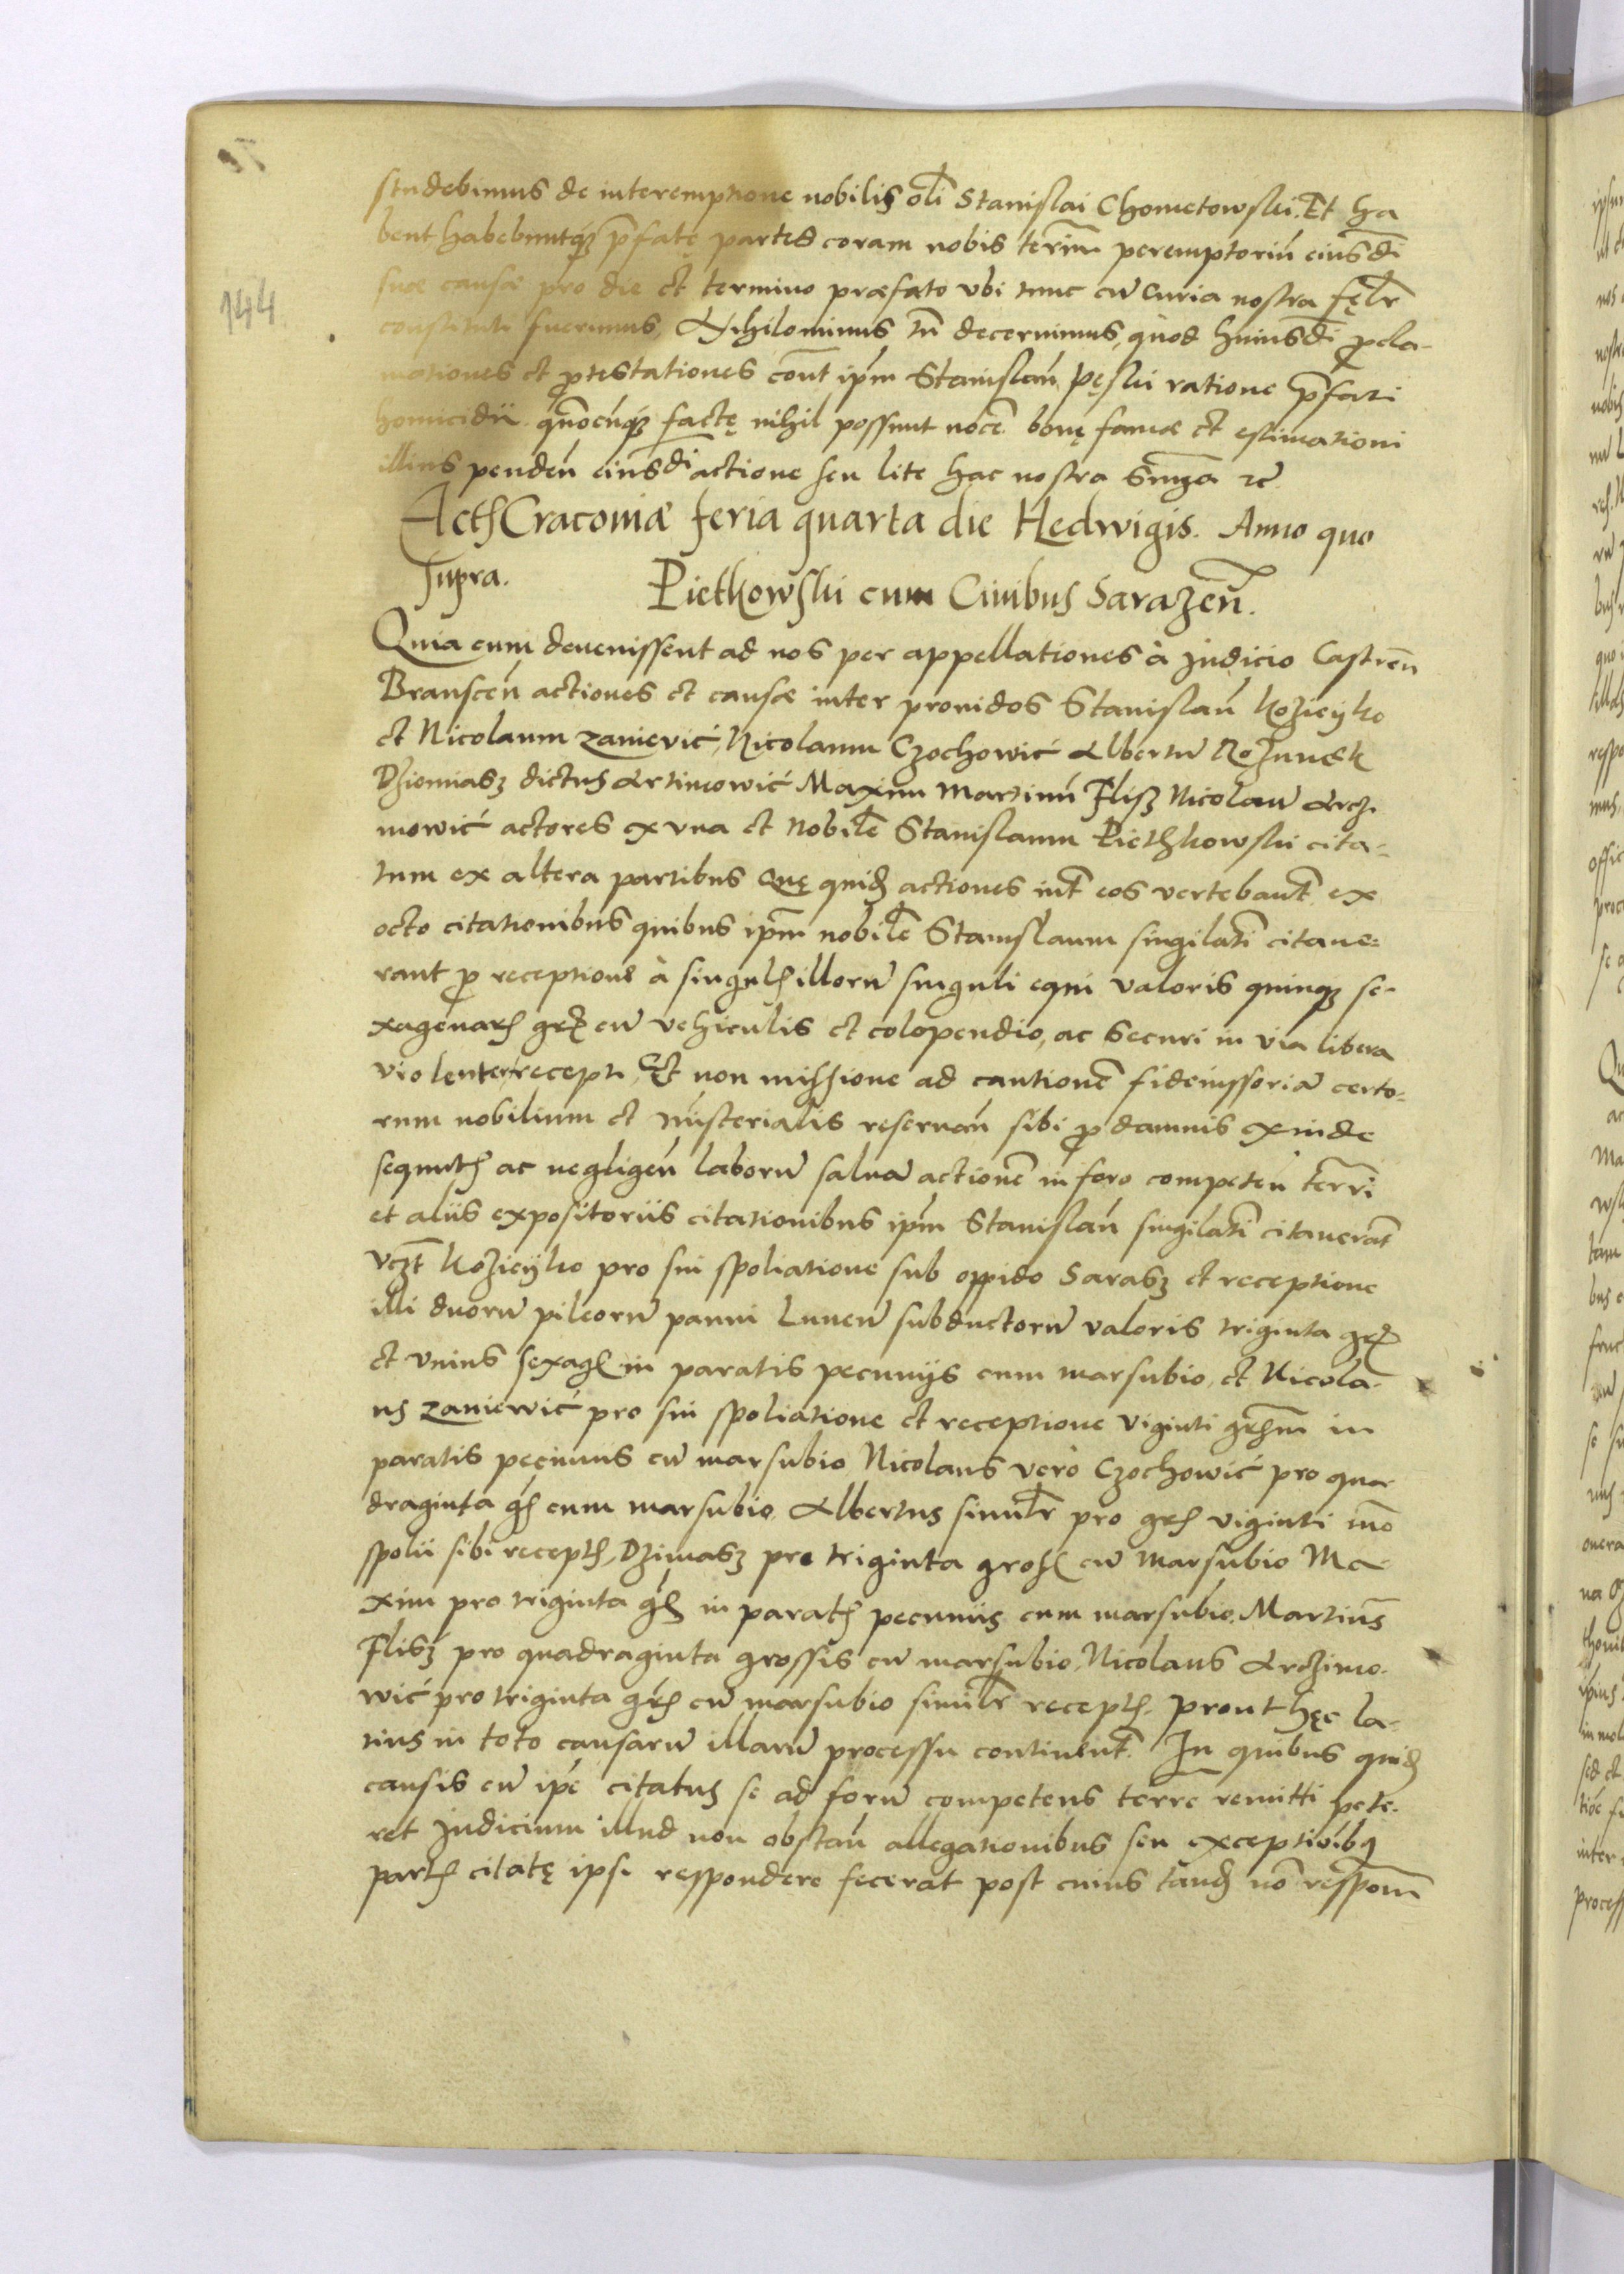 studebimus de interemptione nobilis oli Stanislai Chometowski. Et ha
bent habebuntq̃ pfatę partes coram nobis termĩ peremptoriũ eiusdi
suæ causæ pro die et termino præfato vbi tunc cũ Curia nostra fęlr
144
constituti fuerimus, Nihilominus tñ decernimus, quod huiusdi pcla-
mationes et ptestationes cont ipm Stanislaũ Pęski ratione pfati
homicidii quõcũq factę nihil possunt nocẽ bonę famæ et estimationi
illius penden eiusdi actione seu lite hac nostra snĩa &c
Acth Cracouiæ feria quarta die Hedwigis. Anno quo
supra.
Pietkowski cum Ciuibus Sarazeñ.
Quia cum deuenissent ad nos per appellationes à Judicio Castreñ
Branscen actiones et causæ inter prouidos Stanislaũ Kozieyko
et Nicolaum Zaniewić, Nicolaum Czochowić Albertũ Rozunek
Dziemiasz dictus Artimowić Maxim Martinũ Flisz Nicolaũ Arczi
mowić actores ex vna et Nobilẽ Stanislaum Piethkowski cita-
tum ex altera partibus Quę quid actiones int eos vertebant ex
octo citationibus quibus ipm nobilẽ Stanislaum singilati citaue-
rant p receptione à singulis illorũ singuli equi valoris quinq se-
xagenarũ gr cũ vehiculis et colopendio, ac securi in via libera
violenter recepti, Et non missione ad cautionẽ fideiussoriã certo-
rum nobilium et ministerialis reseruań sibi p damnis exinde
sequutis ac negligen laborũ saluã actionẽ in foro competen terri
et aliis expositoriis citationibus ipm Stanislaũ singilati citauerat
vczt Kozieyko pro sui spoliatione sub oppido Sarasz et receptione
illi duorũ pileorũ panni Lunen subductorũ valoris triginta gr
et vnius sexag in paratis pecunijs cum marsubio, et Nicola-
us Zaniewić pro sui spoliatione et receptione viginti grossm in
paratis pecuniis cũ marsubio Nicolaus verò Czochowić pro qua
draginta gr cum marsubio Albertus similr pro gr viginti mõ
spolii sibi recepth, Dzimasz pro triginta gross cũ marsubio Ma-
xim pro triginta gr in parath pecuniis cum marsubio, Martinũs
Flisz pro quadraginta grossis cũ marsubio, Nicolaus Arczimo-
wić pro triginta gr cũ marsubio similr recepth, prout hęc la-
tius in toto causarũ illarũ processu continent. In quibus quid
causis cũ ipe citatus se ad forũ competens terre remitti pete-
ret Judicium illud non obstan allegationibus seu exceptionibq
parth citatę ipsi respondere fecerat post cuius tand nõ responm